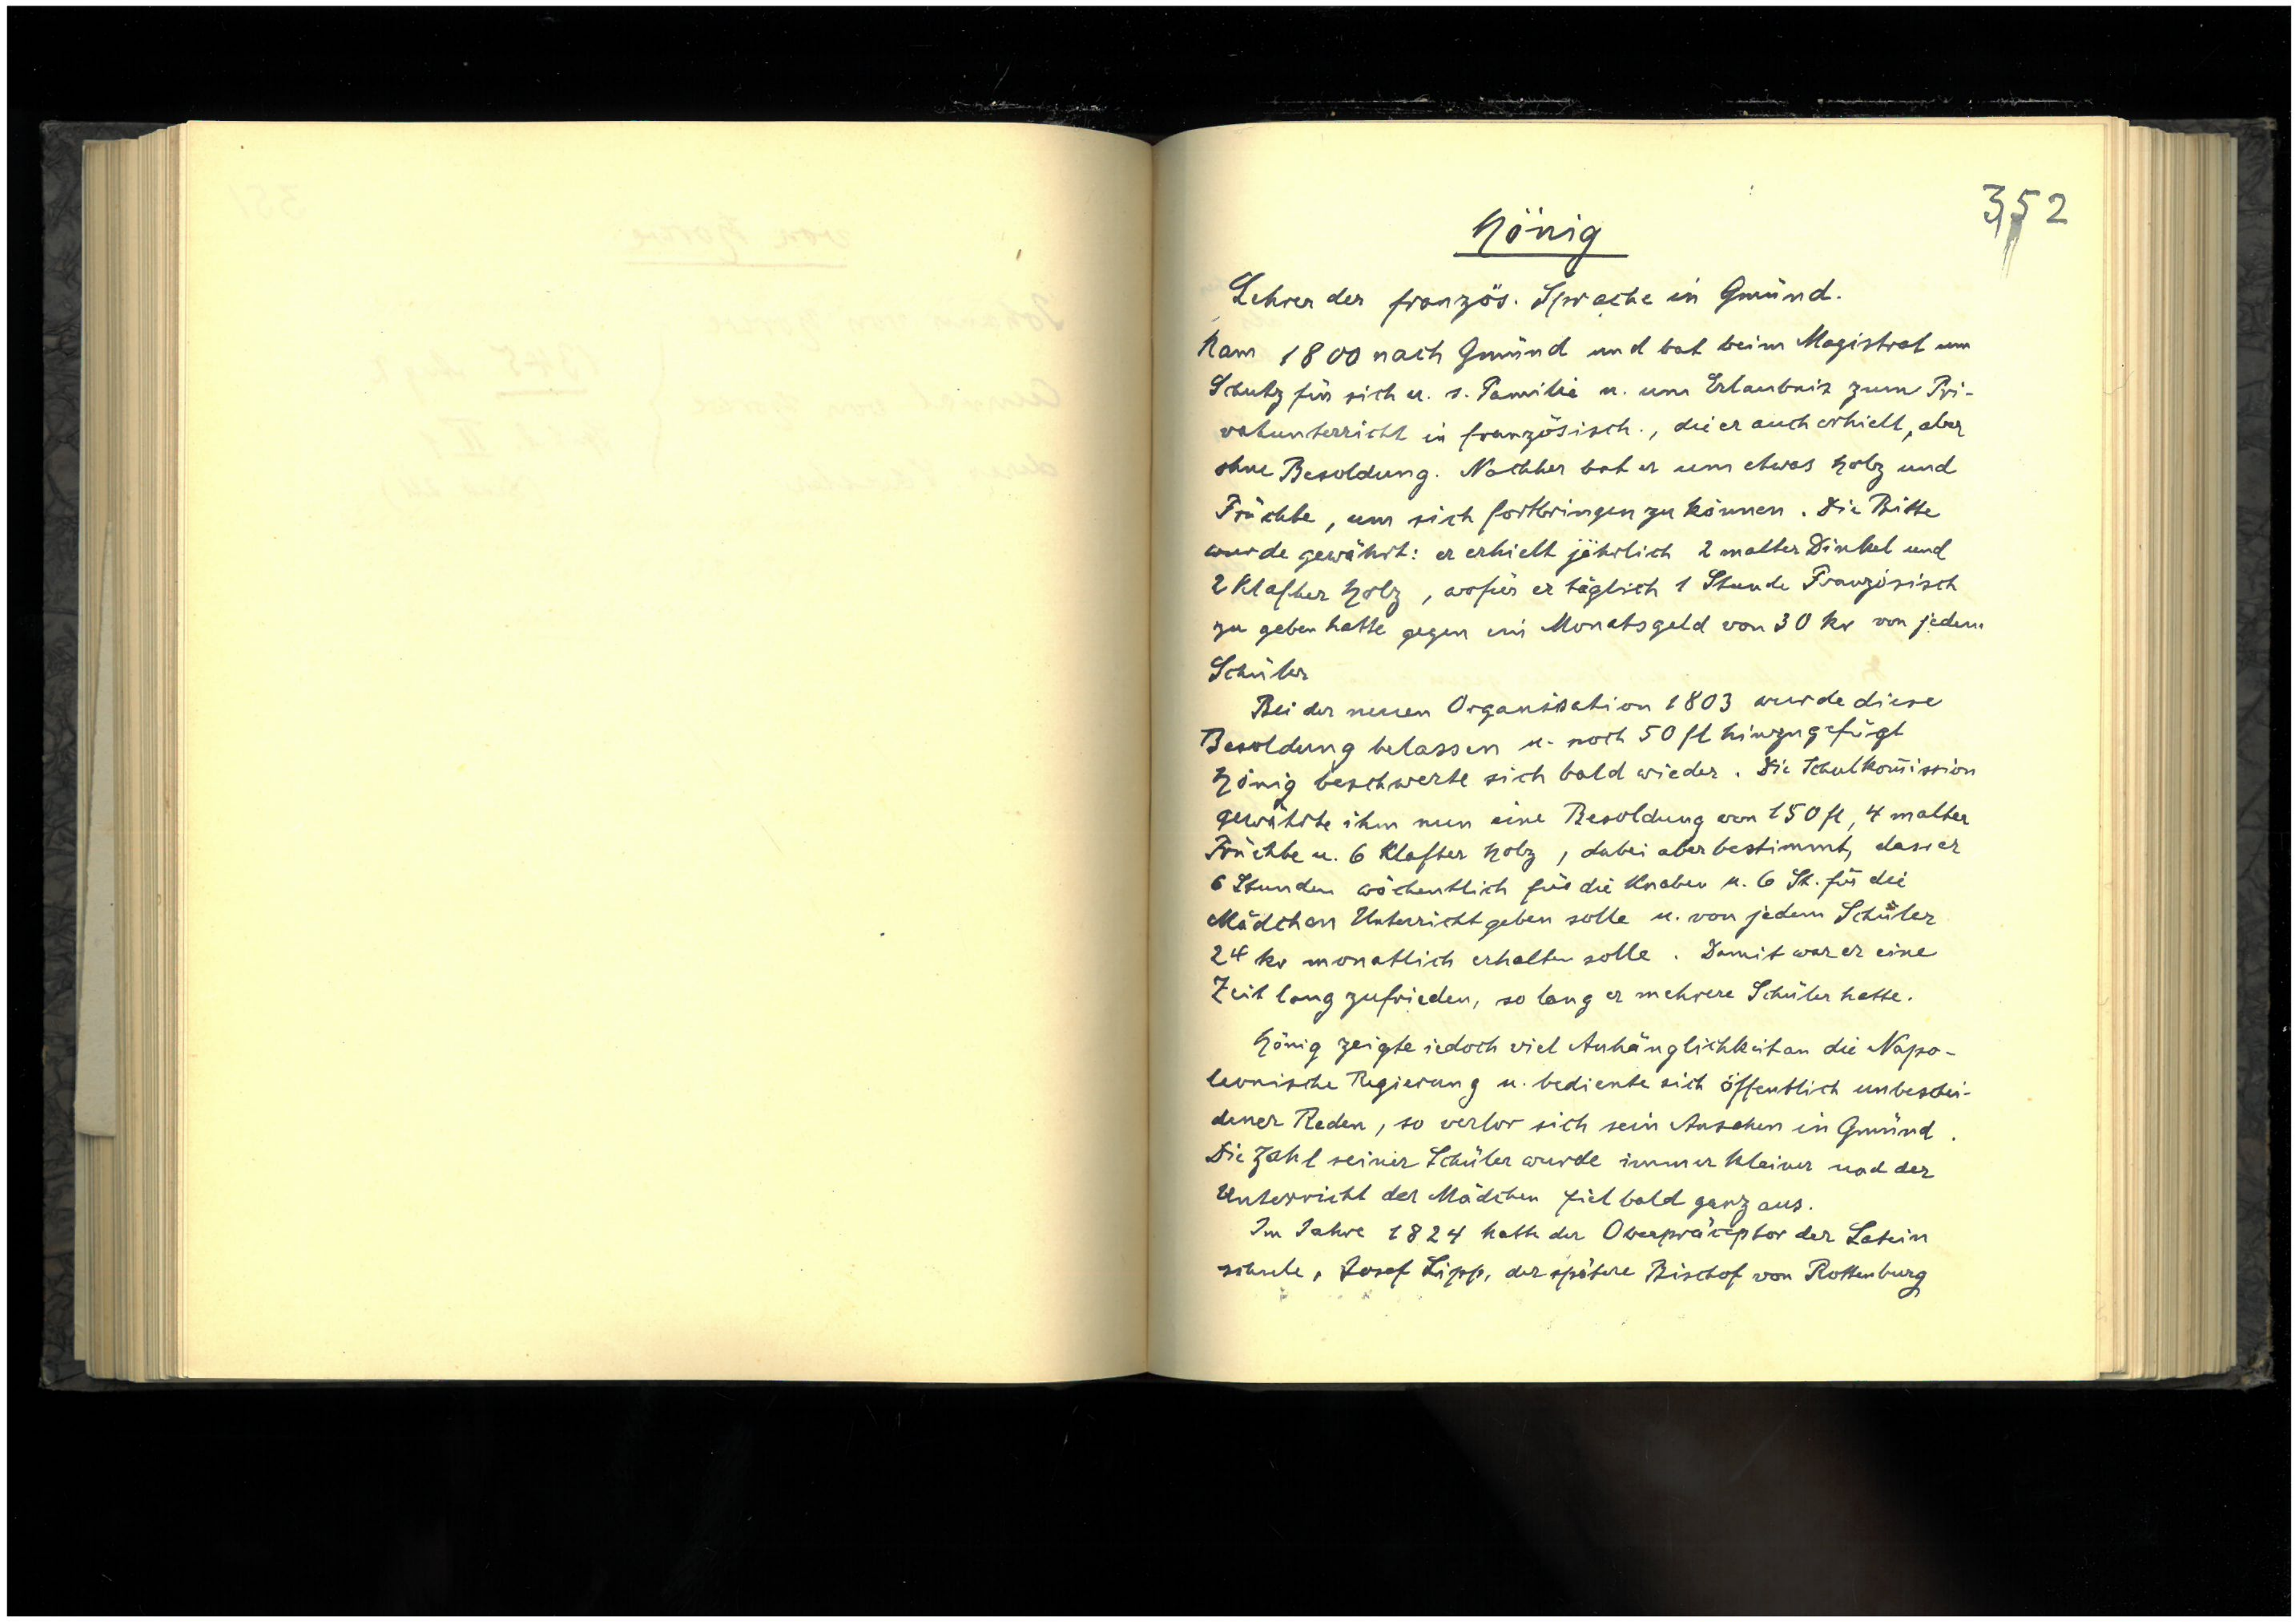 352
Hönig
Lehrer der französ. Sprache in Gmünd.
Kam 1800 nach Gmünd und bat beim Magistrat um
Schutz für sich u. s. Familie u. um Erlaubnis zum Pri-
vatunterricht in französisch., die er auch erhielt, aber
ohne Besoldung. Nachher bat er um etwas Holz und
Früchte, um sich fortbringen zu können. Die Bitte
wurde gewährt: er erhielt jährlich 2 malter Dinkel und
2 Klafter Holz, wofür er täglich 1 Stunde Französisch
zu geben hatte gegen ein Monatsgeld von 30 kr von jedem
Schüler
Bei der neuen Organisation 1803 wurde diese
Besoldung belassen u. noch 50 fl hinzugefügt
Hönig beschwerte sich bald wieder. Die Schulkom̄ission
gewährte ihm nun eine Besoldung von 150 fl, 4 malter
Früchte u. 6 Klafter Holz, dabei aber bestimmt, dass er
6 Stunden wöchentlich für die Knaben u. 6 St. für die
Mädchen Unterricht geben solle u. von jedem Schüler
24 kr monatlich erhalten solle. Damit war er eine
Zeit lang zufrieden, so lang er mehrere Schüler hatte.
Hönig zeigte jedoch viel Anhänglichkeit an die Napo-
leonische Regierung u. bediente sich öffentlich unbeschei-
dener Reden, so verlor sich sein Ansehen in Gmünd.
Die Zahl seiner Schüler wurde immer kleiner und der
Unterricht der Mädchen fiel bald ganz aus.
Im Jahre 1824 hatte der Oberpräceptor der Latein
schule, Josef Lipp, der spätere Bischof von Rottenburg